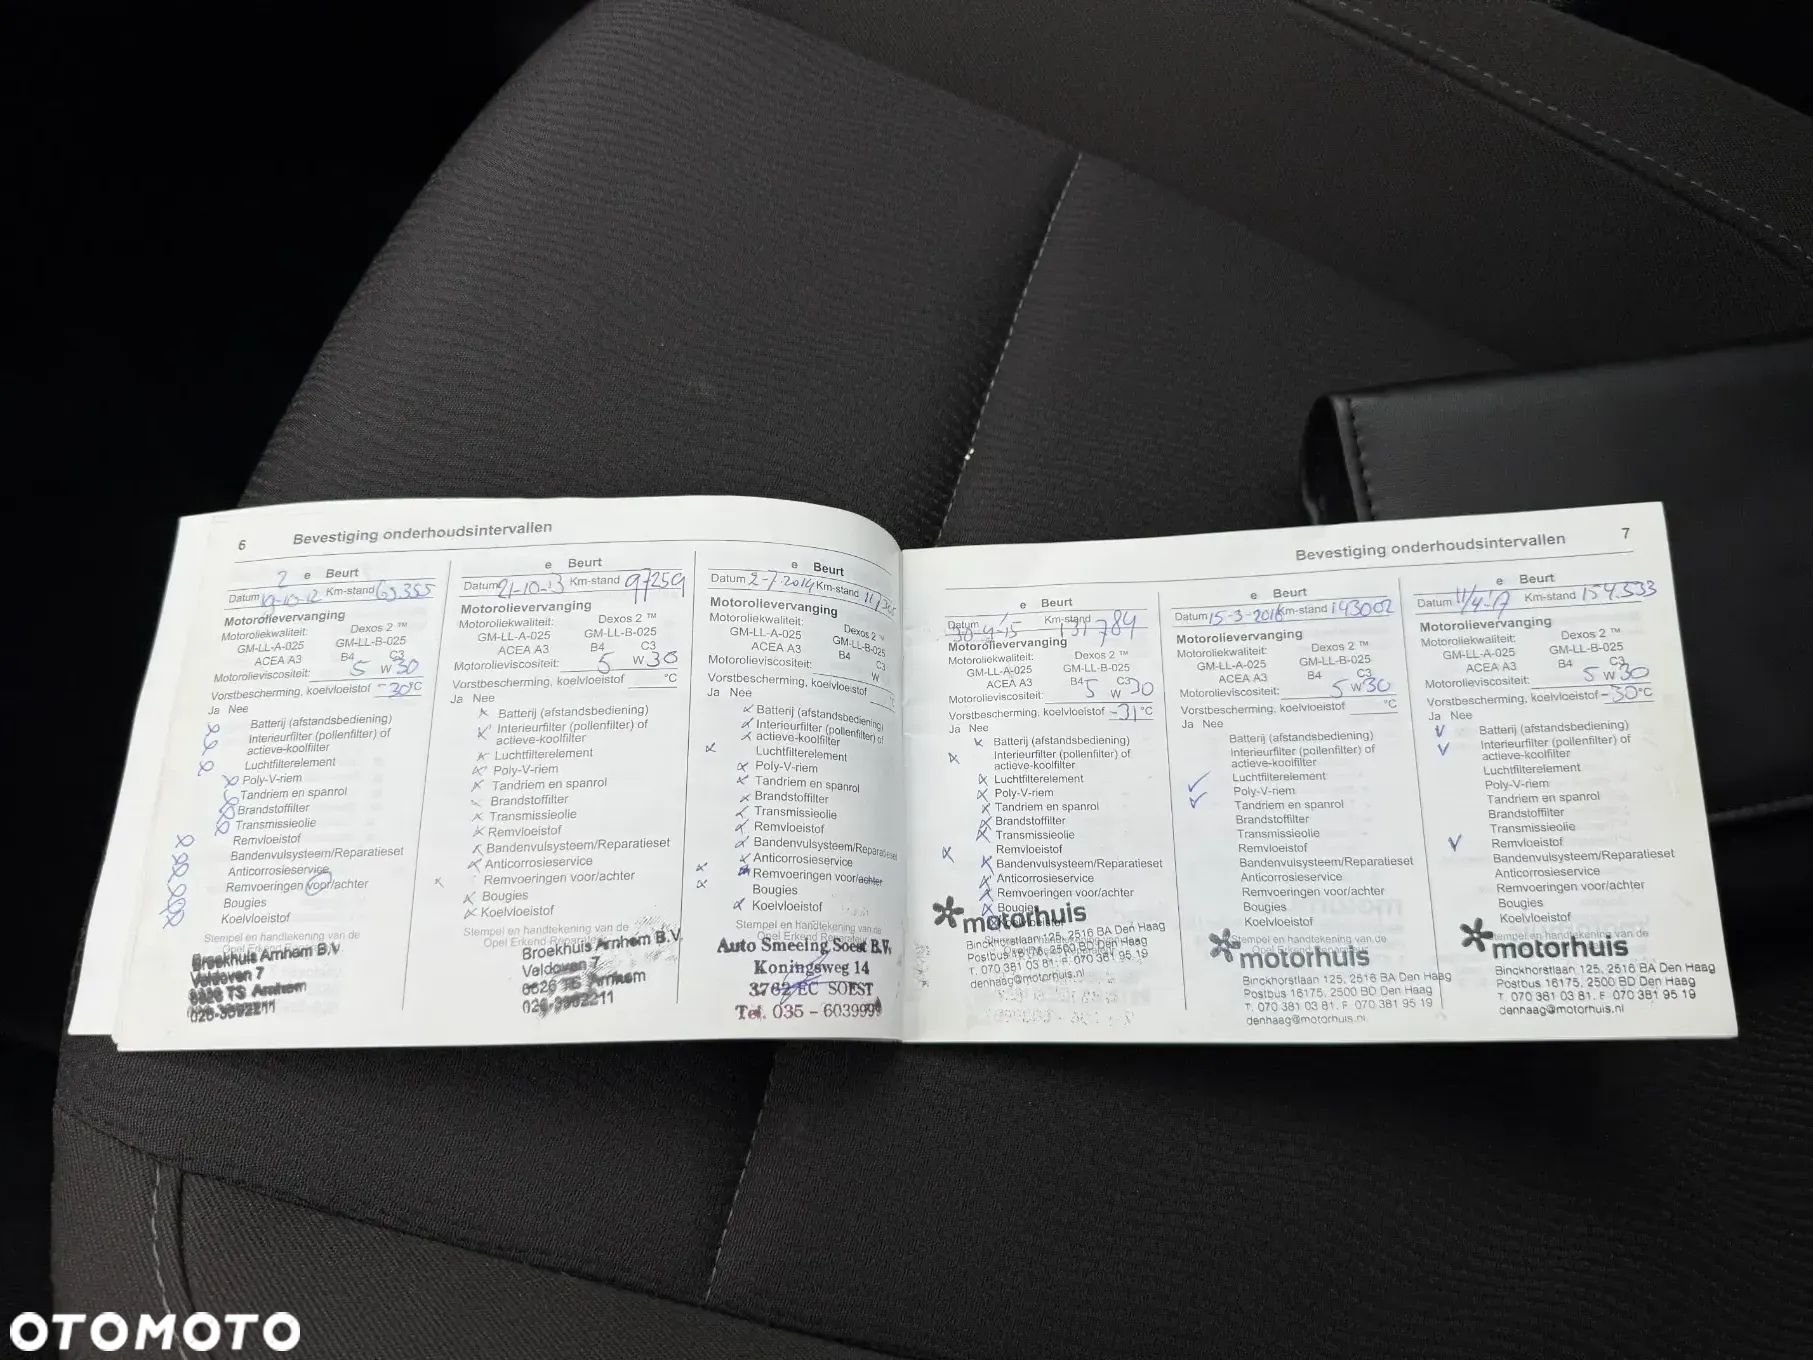 6 Bevestiging onderhoudsintervallen
2 e Beurt
Datum 19-10-12 Km-stand 69.355
Motorolievervanging
Motoroliekwaliteit: Dexos 2 ™
GM-LL-A-025 GM-LL-B-025
ACEA A3 B4 C3
Motorolieviscositeit: 5 W 30
Vorstbescherming, koelvloeistof -30 °C
Ja Nee
Batterij (afstandsbediening)
Interieurfilter (pollenfilter) of
actieve-koolfilter
Luchtfilterelement
Poly-V-riem
Tandriem en spanrol
Brandstoffilter
Transmissieolie
Remvloeistof
Bandenvulsysteem/Reparatieset
Anticorrosieservice
Remvoeringen voor/achter
Bougies
Koelvloeistof
Stempel en handtekening van de
Opel Erkend Reparateur
Broekhuis Arnhem B.V.
Veldoven 7
6826 TS Arnhem
026-3692211
e Beurt
Datum 21-10-13 Km-stand 97259
Motorolievervanging
Motoroliekwaliteit: Dexos 2 ™
GM-LL-A-025 GM-LL-B-025
ACEA A3 B4 C3
Motorolieviscositeit: 5 W 30
Vorstbescherming, koelvloeistof °C
Ja Nee
Batterij (afstandsbediening)
Interieurfilter (pollenfilter) of
actieve-koolfilter
Luchtfilterelement
Poly-V-riem
Tandriem en spanrol
Brandstoffilter
Transmissieolie
Remvloeistof
Bandenvulsysteem/Reparatieset
Anticorrosieservice
Remvoeringen voor/achter
Bougies
Koelvloeistof
Stempel en handtekening van de
Opel Erkend Reparateur
Broekhuis Arnhem B.V.
Veldoven 7
6826 TS Arnhem
e Beurt
Datum 2-7-2014 Km-stand
Motorolievervanging
Motoroliekwaliteit: Dexos 2 ™
GM-LL-A-025 GM-LL-B-025
ACEA A3 B4 C3
Motorolieviscositeit: W
Vorstbescherming, koelvloeistof
Ja Nee
Batterij (afstandsbediening)
Interieurfilter (pollenfilter) of
actieve-koolfilter
Luchtfilterelement
Poly-V-riem
Tandriem en spanrol
Brandstoffilter
Transmissieolie
Remvloeistof
Bandenvulsysteem/Reparatieset
Anticorrosieservice
Remvoeringen voor/achter
Bougies
Koelvloeistof
Stempel en handtekening van de
Opel Erkend Reparateur
Auto Smeeing Soest B.V.
Koningsweg 14
3762 EC SOEST
Tel. 035 - 6039999
Bevestiging onderhoudsintervallen 7
e Beurt
Datum 30-4-15 Km-stand 131784
Motorolievervanging
Motoroliekwaliteit: Dexos 2 ™
GM-LL-A-025 GM-LL-B-025
ACEA A3 B4 C3
Motorolieviscositeit: 5 W 30
Vorstbescherming, koelvloeistof -31 °C
Ja Nee
Batterij (afstandsbediening)
Interieurfilter (pollenfilter) of
actieve-koolfilter
Luchtfilterelement
Poly-V-riem
Tandriem en spanrol
Brandstoffilter
Transmissieolie
Remvloeistof
Bandenvulsysteem/Reparatieset
Anticorrosieservice
Remvoeringen voor/achter
Bougies
Koelvloeistof
motorhuis
Binckhorstlaan 125, 2516 BA Den Haag
Postbus 16175, 2500 BD Den Haag
T. 070 381 03 81. F. 070 381 95 19
denhaag@motorhuis.nl
e Beurt
Datum 15-3-2016 Km-stand 143002
Motorolievervanging
Motoroliekwaliteit: Dexos 2 ™
GM-LL-A-025 GM-LL-B-025
ACEA A3 B4 C3
Motorolieviscositeit: 5 W 30
Vorstbescherming, koelvloeistof °C
Ja Nee
Batterij (afstandsbediening)
Interieurfilter (pollenfilter) of
actieve-koolfilter
Luchtfilterelement
Poly-V-riem
Tandriem en spanrol
Brandstoffilter
Transmissieolie
Remvloeistof
Bandenvulsysteem/Reparatieset
Anticorrosieservice
Remvoeringen voor/achter
Bougies
Koelvloeistof
Stempel en handtekening van de
Opel Erkend Reparateur
motorhuis
Binckhorstlaan 125, 2516 BA Den Haag
Postbus 16175, 2500 BD Den Haag
T. 070 381 03 81. F. 070 381 95 19
denhaag@motorhuis.nl
e Beurt
Datum 11/4-17 Km-stand 154.533
Motorolievervanging
Motoroliekwaliteit: Dexos 2 ™
GM-LL-A-025 GM-LL-B-025
ACEA A3 B4 C3
Motorolieviscositeit: 5 W 30
Vorstbescherming, koelvloeistof -30 °C
Ja Nee
Batterij (afstandsbediening)
Interieurfilter (pollenfilter) of
actieve-koolfilter
Luchtfilterelement
Poly-V-riem
Tandriem en spanrol
Brandstoffilter
Transmissieolie
Remvloeistof
Bandenvulsysteem/Reparatieset
Anticorrosieservice
Remvoeringen voor/achter
Bougies
Koelvloeistof
Stempel en handtekening van de
motorhuis
Binckhorstlaan 125, 2516 BA Den Haag
Postbus 16175, 2500 BD Den Haag
T. 070 381 03 81. F. 070 381 95 19
denhaag@motorhuis.nl
OTOMOTO